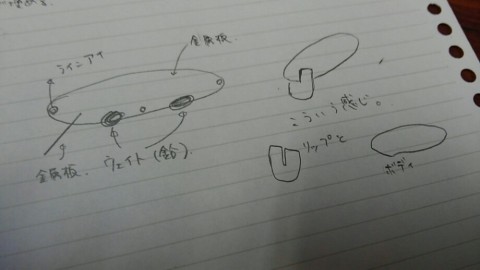 ラインアイ
金属板
金属板、ウェイト(鉛)
こういう感じ。
リップと
ボディ